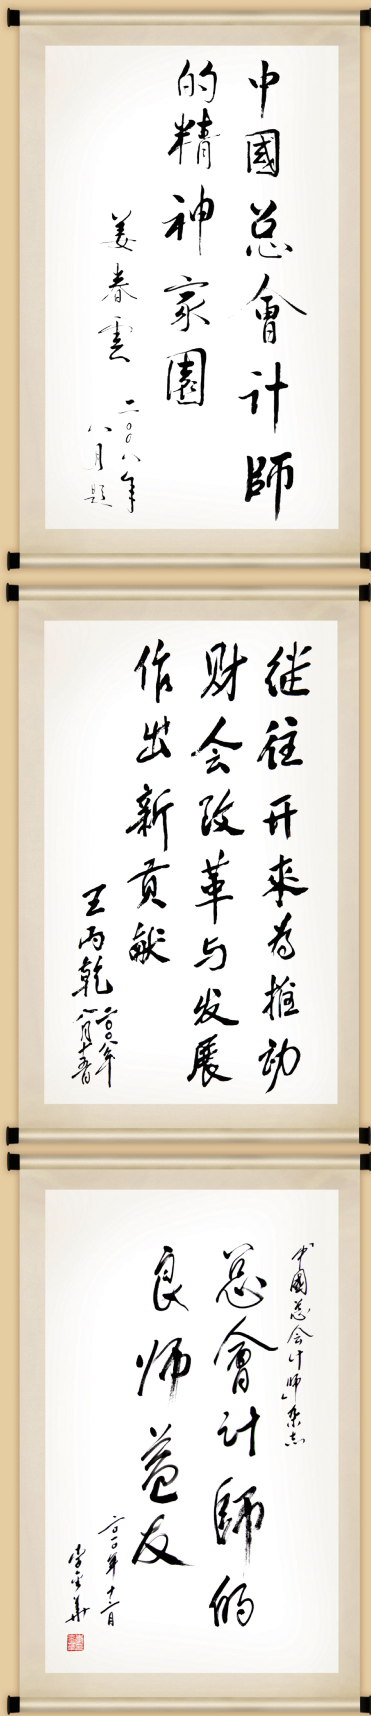 中國总會计師
的精神家園
姜春雲
二〇〇八年
八月題
继往开来为推动
财会改革与发展
作出新贡献
王丙乾
二〇〇八年
八月十五日
《中國总会计师》杂志
总會计師的
良师益友
二〇一〇年十一月
李金華